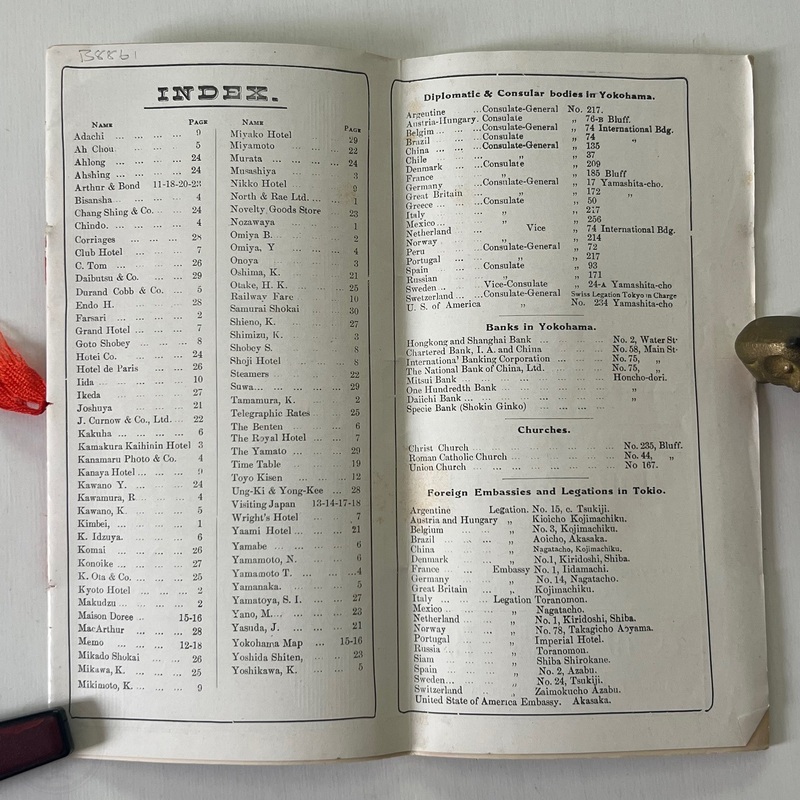 B8861
INDEX.
NAME PAGE
Adachi ... ... ... 9
Ah Chou. 5
Ahlong ... ... ... 24
Ahshing ... ... ... 24
Arthur & Bond 11-18-20-23
Bisansha ... 4
Chang Shing & Co. 24
Chindo. ... ... ... 4
Corriages ... ... 28
Club Hotel 7
C. Tom ... ... ... 26
Daibutsu & Co. ... 29
Durand Cobb & Co. 5
Endo H. 28
Farsari ... ... ... 2
Grand Hotel ... ... 7
Goto Shobey ... ... 8
Hotei Co. 24
Hotel de Paris 26
Iida 10
Ikeda 27
Joshuya 21
J. Curnow & Co., Ltd. ... 22
Kakuha ... ... ... 6
Kamakura Kaihinin Hotel 3
Kanamaru Photo & Co. 4
Kanaya Hotel ... 9
Kawano Y. 24
Kawamura, R 4
Kawano, K. 5
Kimbei, 1
K. Idzuya. 6
Komai ... ... ... 26
Konoike ... ... ... 27
K. Ota & Co. ... ... 25
Kyoto Hotel 2
Makudzu 2
Maison Doree ... 15-16
MacArthur ... ... ... 28
Memo ... ... ... 12-18
Mikado Shokai 26
Mikawa, K. ... ... 25
Mikimoto, K. ... ... 9
NAME PAGE
Miyako Hotel 29
Miyamoto 22
Murata ... ... ... 24
Musashiya 3
Nikko Hotel 9
North & Rae Ltd. ... 1
Novelty Goods Store 23
Nozawaya 1
Omiya B. 2
Omiya, Y 4
Onoya 3
Oshima, K. 21
Otake, H. K. 25
Railway Fare 10
Samurai Shokai 30
Shieno, K. 27
Shimizu, K. 3
Shobey S. 8
Shoji Hotel 8
Steamers 22
Suwa... ... ... ... 29
Tamamura, K. 2
Telegraphic Rates 25
The Benten 6
The Royal Hotel 7
The Yamato 29
Time Table 19
Toyo Kisen 12
Ung-Ki & Yong-Kee ... 28
Visiting Japan 13-14-17-18
Wright's Hotel 7
Yaami Hotel ... ... 21
Yamabe 6
Yamamoto, N. 6
Yamamoto T. ... ... 4
Yamanaka. 5
Yamatoya, S. I. 27
Yano, M... 23
Yasuda, J. 21
Yokohama Map 15-16
Yoshida Shiten, 23
Yoshikawa, K. 5
Diplomatic & Consular bodies in Yokohama.
Argentine ... Consulate-General No. 217.
Austria-Hungary. Consulate „ 76-B Bluff.
Belgim ... Consulate-General „ 74 International Bdg.
Brazil ... Consulate „ 74 „
China ... ... Consulate-General „ 135
Chile „ „ 37
Denmark ... Consulate „ 209
France „ „ 185 Bluff
Germany ... Consulate-General „ 17 Yamashita-cho.
Great Britain „ „ 172 „
Greece ... ... Consulate „ 50
Italy „ „ 217
Mexico... „ „ 256
Netherland Vice „ 74 International Bdg.
Norway ... „ „ 214
Peru Consulate-General „ 72
Portugal „ „ 217
Spain Consulate „ 93
Russian „ „ 171
Sweden ... Vice-Consulate „ 24-A Yamashita-cho
Swetzerland ... Consulate-General Swiss Legation Tokyo in Charge
U. S. of America „ No. 234 Yamashita-cho
Banks in Yokohama.
Hongkong and Shanghai Bank No. 2, Water St·
Chartered Bank, I. A. and China No. 58, Main St·
International Banking Corporation No. 75, „
The National Bank of China, Ltd. No. 75, „
Mitsui Bank Honcho-dori.
One Hundredth Bank „
Daiichi Bank ... „
Specie Bank (Shokin Ginko)
Churches.
Christ Church No. 235, Bluff.
Roman Catholic Church No. 44, „
Union Church No 167.
Foreign Embassies and Legations in Tokio.
Argentine Legation. No. 15, c. Tsukiji.
Austria and Hungary „ Kioicho Kojimachiku.
Belgium „ No. 3, Kojimachiku.
Brazil „ Aoicho, Akasaka.
China „ Nagatacho, Kojimachiku,
Denmark „ No.1, Kiridoshi, Shiba.
France Embassy No. 1, Iidamachi.
Germany „ No. 14, Nagatacho.
Great Britain „ Kojimachiku.
Italy Legation Toranomon.
Mexico „ Nagatacho.
Netherland „ No. 1, Kiridoshi, Shiba.
Norway „ No. 78, Takagicho Aoyama.
Portugal „ Imperial Hotel.
Russia „ Toranomon.
Siam „ Shiba Shirokane.
Spain „ No. 2, Azabu.
Sweden... „ No. 24, Tsukiji.
Switzerland „ Zaimokucho Azabu.
United State of America Embassy. Akasaka.